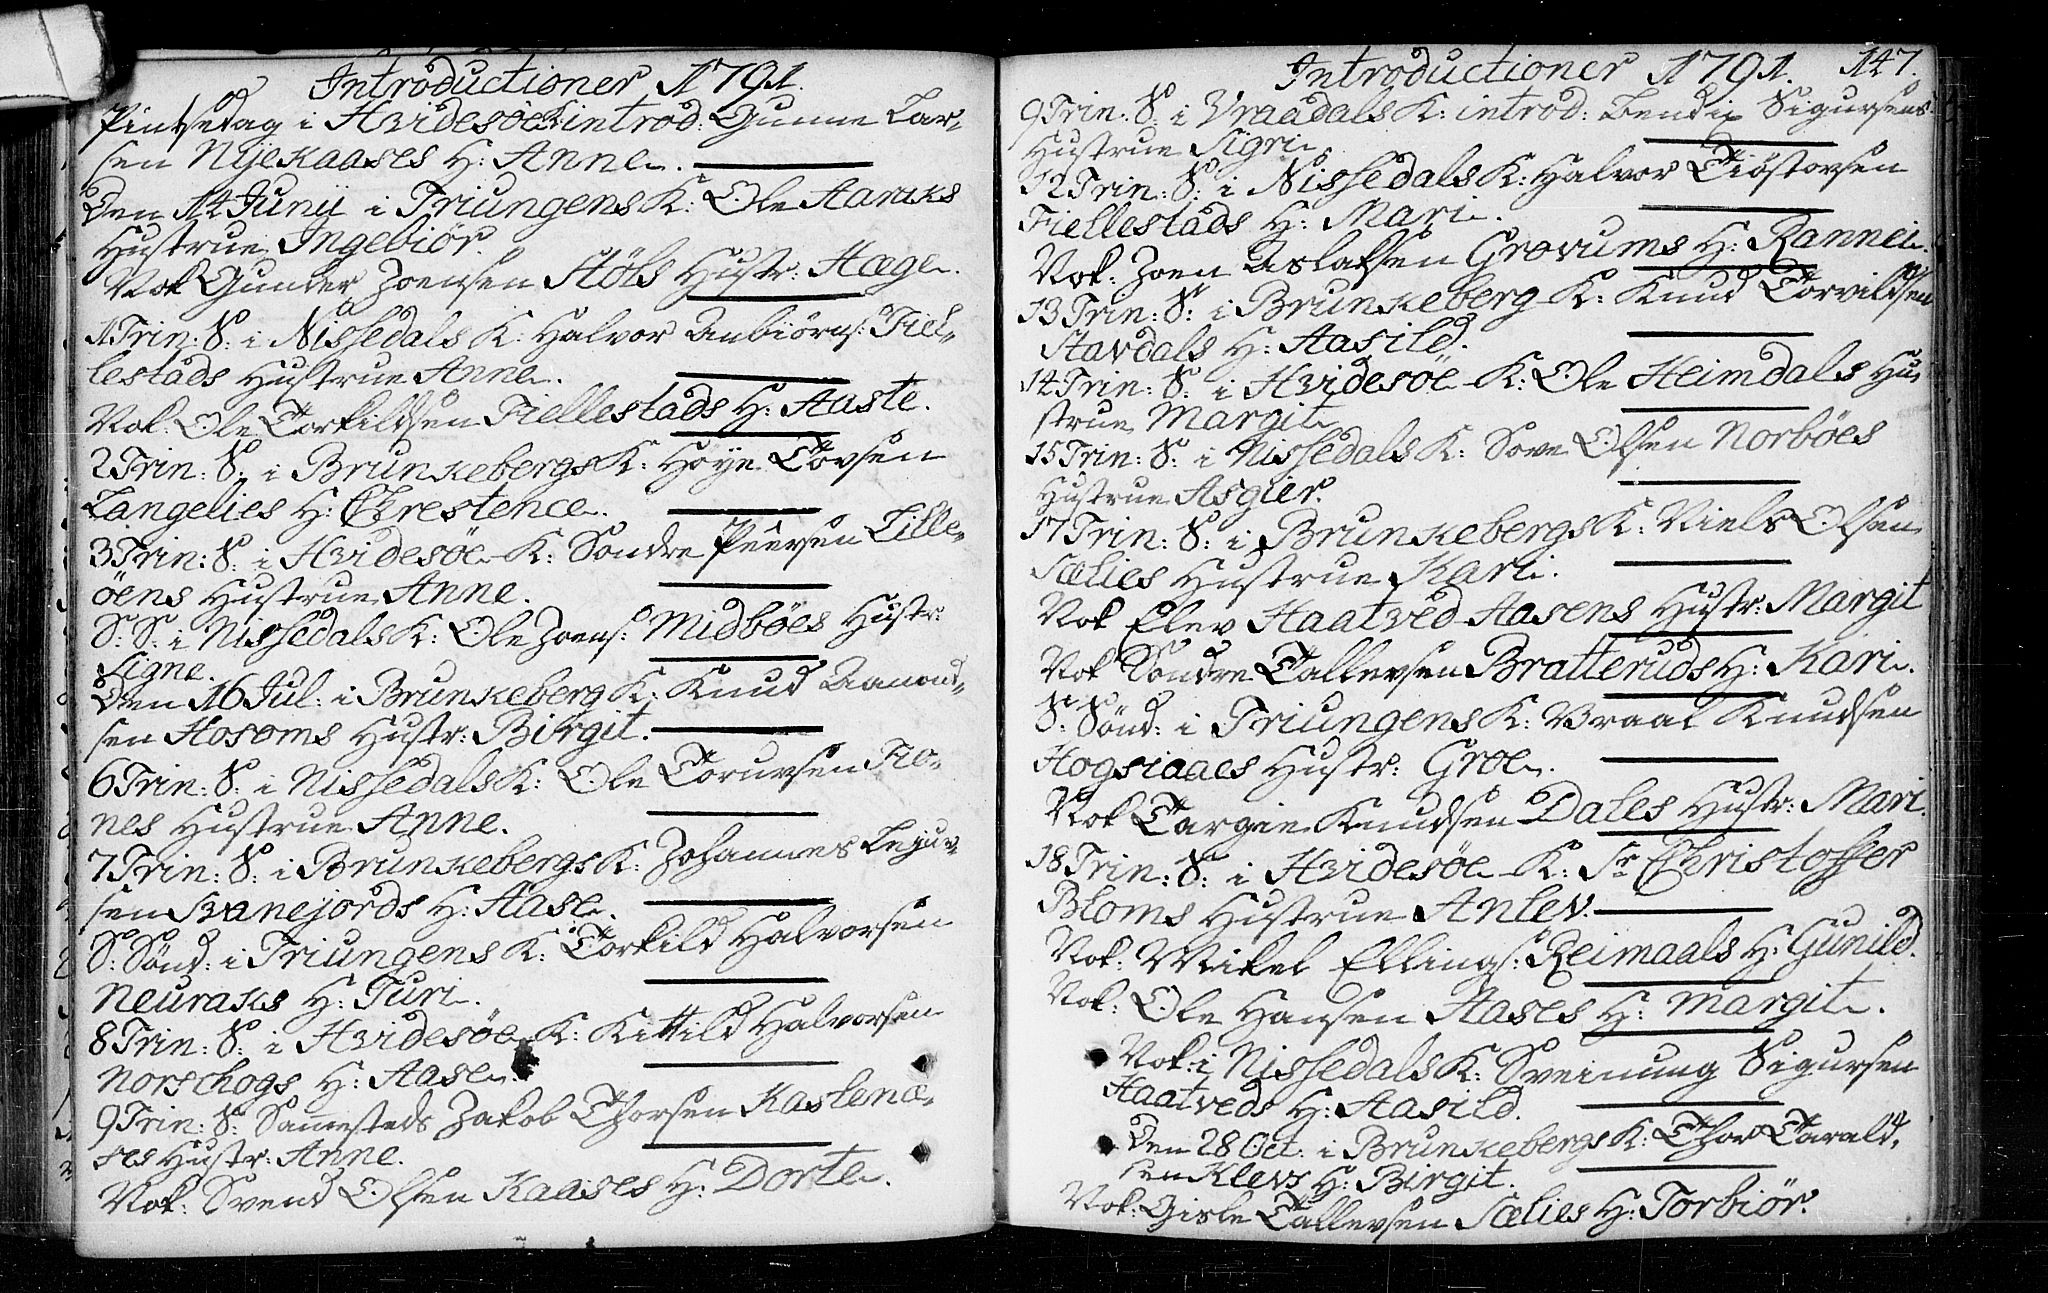 Introductioner 1791.
Pintsedag i Hvidesöe K: introd: Gunne Lar-
sen Nijekaases H: Anne.
Den 14 Junij i Triungens K: Ole Aaraks
Hustrue Ingebiör.
Nok Gunder Joensen Stöls Hustr: Hæge.
1 Trin: S: i Nissedals K: Halvor Anbiörns: Fiel-
lestads Hustrue Anne.
Nok: Ole Torkildsen Fiellestads H: Aaste.
2 Trin: S: i Brunkebergs K: Höye Tovsen
Langelies H: Chrestence.
3 Trin: S: i Hvidesöe K: Sondre Peersen Lille-
öens Hustrue Anne.
S: S: i Nissedals K: Ole Joens: Midböes Hustr:
Signe.
Den 16 Jul: i Brunkeberg K: Knud Aamond-
sen Hosoms Hustr: Birgit.
6 Trin: S: i Nissedals K: Ole Toruvsen Fio-
nes Hustrue Anne.
7 Trin: S: i Brunkebergs K: Johannes Lejuv-
sen Svanejords H: Aase.
S: Sönd: i Triungens K: Torkild Halvorsen
Neuraks H: Turi.
8 Trin: S: i Hvidesöe K: Kittild Halvorsen
Norschogs H: Aase.
9 Trin: S: Sammesteds Jakob Thorsen Kastenæ-
ses Hustr: Anne.
Nok: Svend Olsen Kaases H: Dorte.
Introductioner 1791. 147.
9 Trin: S: i Vraadals K: introd: Bendix Sigursens
Hustrue Sigri.
12 Trin: S: i Nissedals K: Halvor Tiöstovsen
Fiellestads H: Mari.
Nok: Joen Aslaksen Grovums H: Rannei.
13 Trin: S: i Brunkeberg K: Knud Torvildsen
Stavdals H: Aasild.
14 Trin: S: i Hvidesöe K: Ole Heimdals Hu-
strue Margit.
15 Trin: S: i Nissedals K: Sove Olsen Norböes
Hustrue Asgier.
17 Trin: S: i Brunkebergs K: Niels Olsen
Sælies Hustrue Kari.
Nok Elev Haatved Aasens Hustr: Margit
Nok Söndre Tallevsen Bratteruds H: Kari.
S: Sönd: i Triungens K: Vraal Knudsen
Hogsiaaes Hustr: Groe.
Nok Targie Knudsen Dales Hustr: Mari.
18 Trin: S: i Hvidesöe K: Sr Christoffer
Bloms Hustrue Anlev.
Nok: Mikel Ellings: Reimaals H: Gunild.
Nok: Ole Hansen Aases H: Margit.
Nok: i Nissedals K: Sveinung Sigursen
Haatveds H: Aasild.
Den 28 Oct. i Brunkebergs K: Thor Tarald-
sen Klevs H: Birgit.
Nok: Gisle Tallevsen Sælies H: Torbiör.